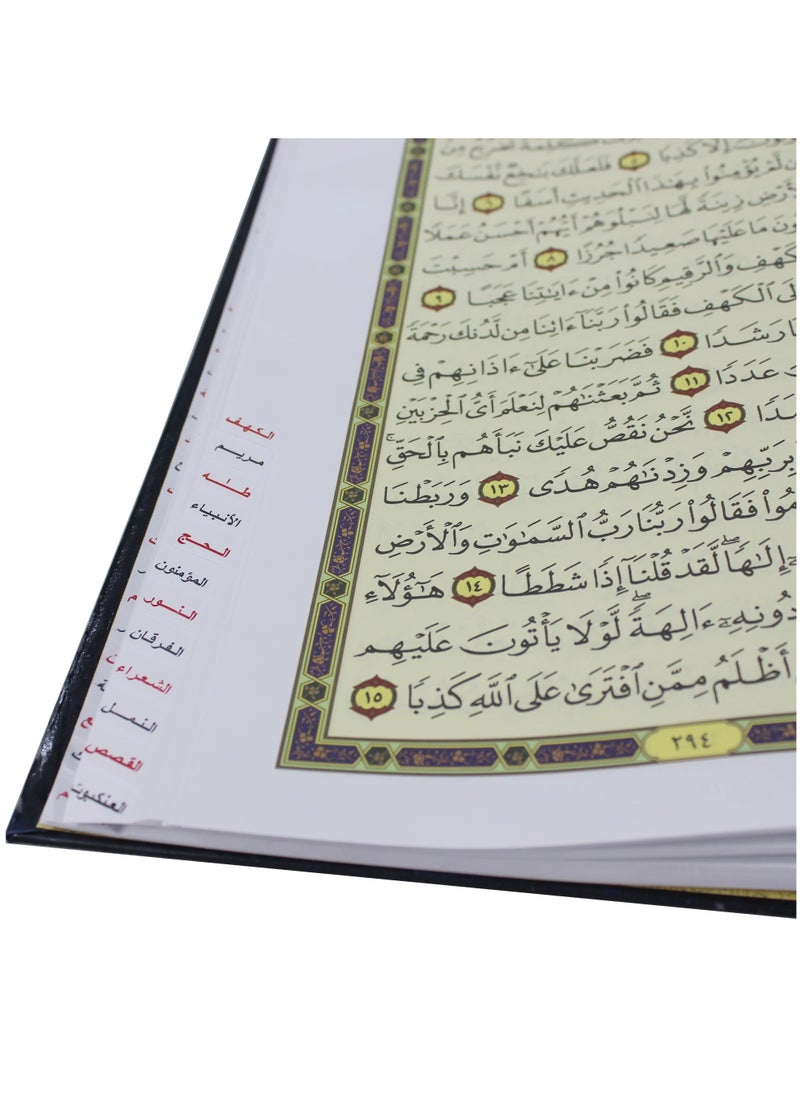 إِلَّا كَذِبًا ٥ فَلَعَلَّكَ بَٰخِعٌ نَّفْسَكَ
لَّمْ يُؤْمِنُوا۟ بِهَٰذَا ٱلْحَدِيثِ أَسَفًا ٦ إِنَّا
زِينَةً لَّهَا لِنَبْلُوَهُمْ أَيُّهُمْ أَحْسَنُ عَمَلًا
مَا عَلَيْهَا صَعِيدًا جُرُزًا ٨ أَمْ حَسِبْتَ
وَٱلرَّقِيمِ كَانُوا۟ مِنْ ءَايَٰتِنَا عَجَبًا ٩
ٱلْكَهْفِ فَقَالُوا۟ رَبَّنَآ ءَاتِنَا مِن لَّدُنكَ رَحْمَةً
رَشَدًا ١٠ فَضَرَبْنَا عَلَىٰٓ ءَاذَانِهِمْ فِى
عَدَدًا ١١ ثُمَّ بَعَثْنَٰهُمْ لِنَعْلَمَ أَىُّ ٱلْحِزْبَيْنِ
١٢ نَّحْنُ نَقُصُّ عَلَيْكَ نَبَأَهُم بِٱلْحَقِّ ۚ
بِرَبِّهِمْ وَزِدْنَٰهُمْ هُدًى ١٣ وَرَبَطْنَا
فَقَالُوا۟ رَبُّنَا رَبُّ ٱلسَّمَٰوَٰتِ وَٱلْأَرْضِ
إِلَٰهًا ۖ لَّقَدْ قُلْنَآ إِذًا شَطَطًا ١٤ هَٰٓؤُلَآءِ
دُونِهِۦٓ ءَالِهَةً ۖ لَّوْلَا يَأْتُونَ عَلَيْهِم
أَظْلَمُ مِمَّنِ ٱفْتَرَىٰ عَلَى ٱللَّهِ كَذِبًا ١٥
٢٩٤
الكهف
مريم
طـٰه
الأنبياء
الحج
المؤمنون
النور
الفرقان
الشعراء
النمل
القصص
العنكبوت